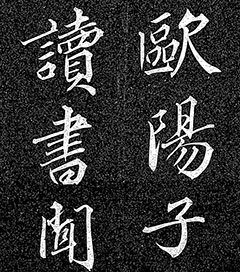 歐陽子
讀書聞